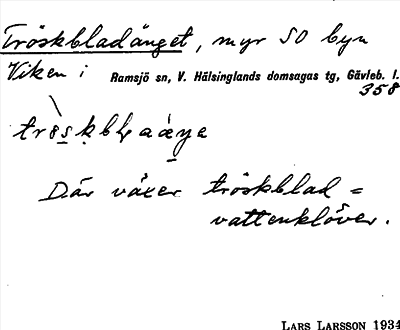 Tröskbladänget, myr SO byn
Viken i Ramsjö sn, V. Hälsinglands domsagas tg, Gävleb. l.
358
Där växer tröskblad =
vattenklöver.
LARS LARSSON 1934